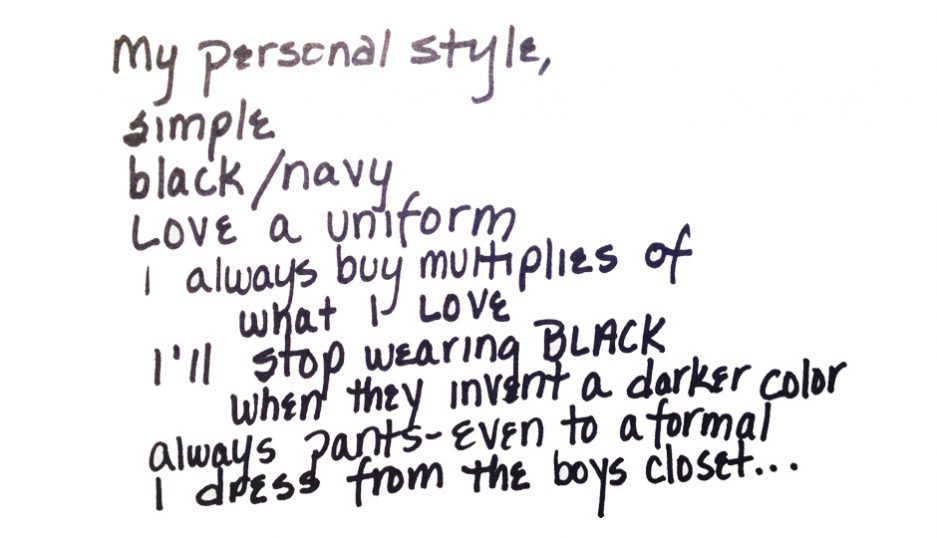 My personal style,
simple
black/navy
LOVE a uniform
I always buy multiplies of
what I LOVE
I'll stop wearing BLACK
when they invent a darker color
always pants-even to a formal
I dress from the boys closet...